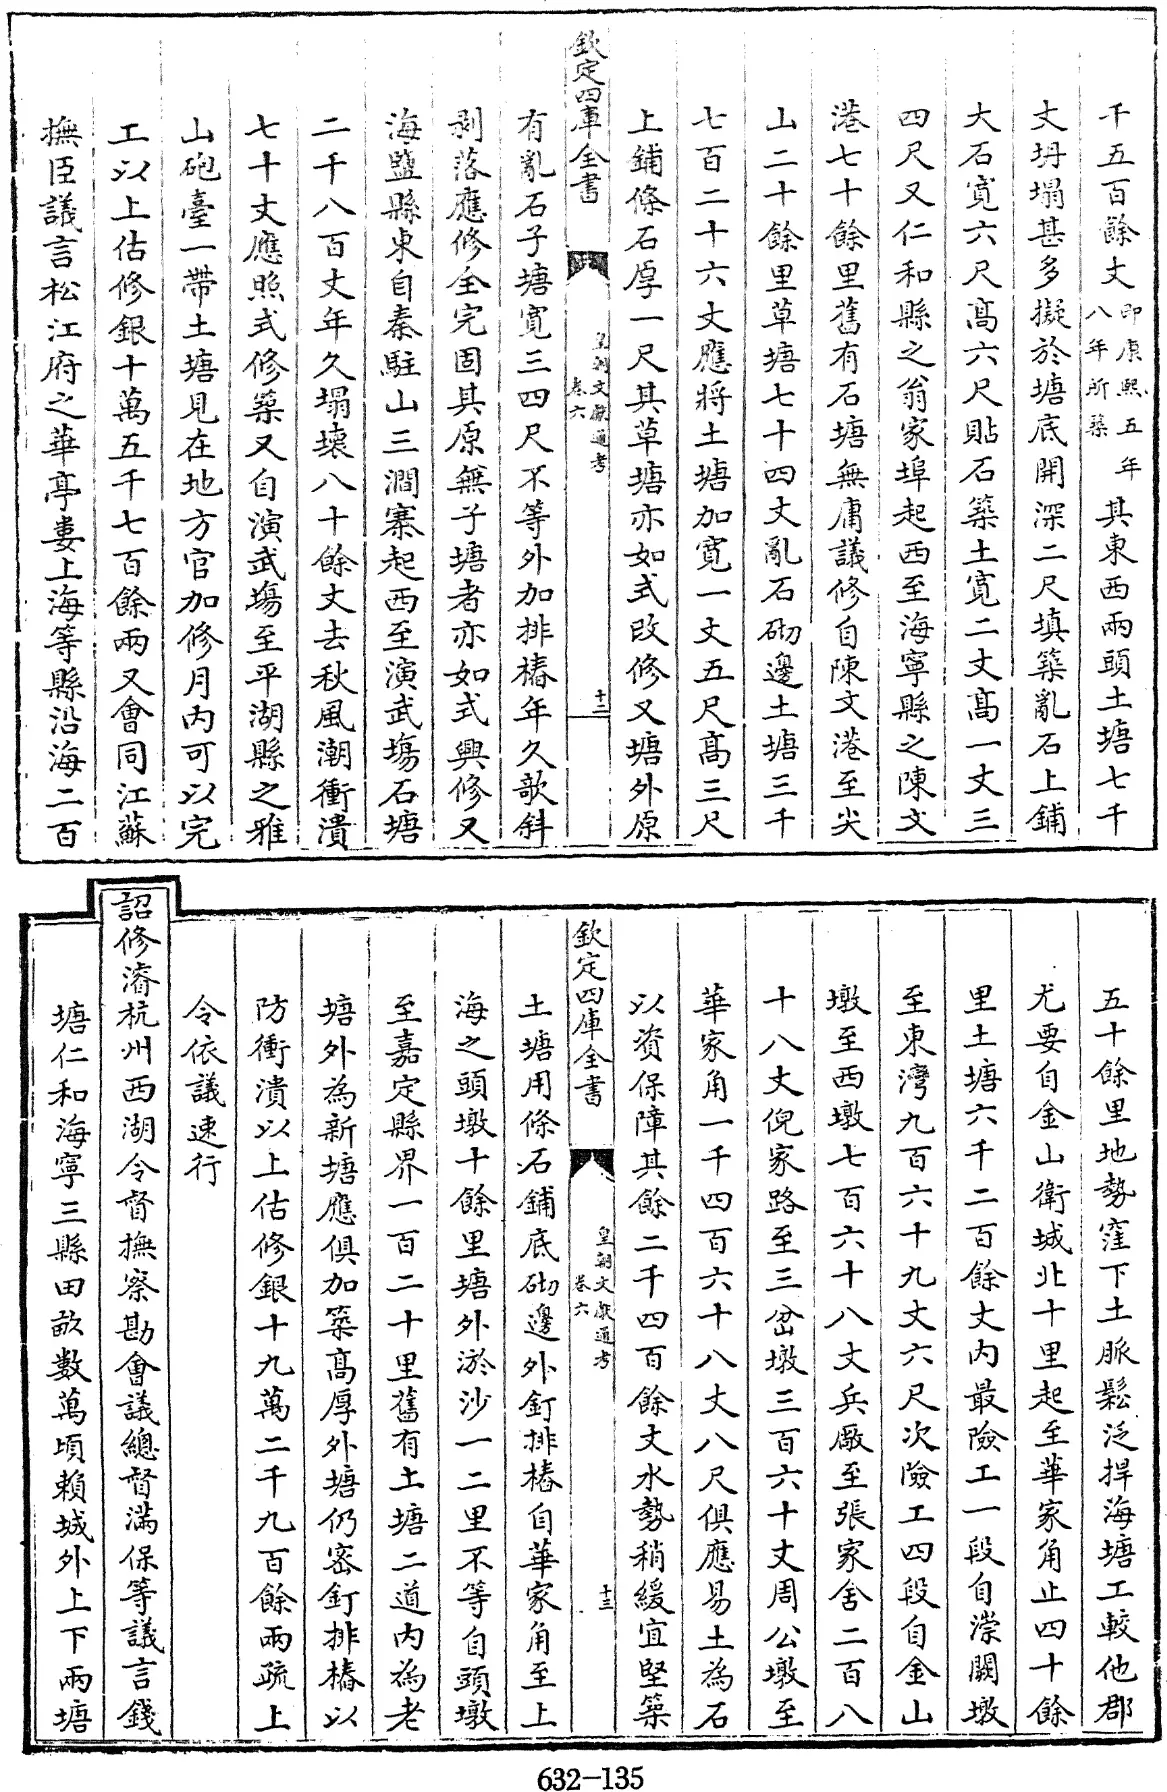 千五百餘丈即康熙五年八年所築其東西兩頭土塘七千
丈坍塌甚多擬於塘底開深二尺填築亂石上鋪
大石寛六尺髙六尺貼石築土寛二丈髙一丈三
四尺又仁和縣之翁家埠起西至海寧縣之陳文
港七十餘里舊有石塘無庸議修自陳文港至尖
山二十餘里草塘七十四丈亂石砌邊土塘三千
七百二十六丈應將土塘加寛一丈五尺髙三尺
上鋪條石厚一尺其草塘亦如式改修又塘外原
欽定四庫全書
皇朝文獻通考
卷六
十二
有亂石子塘寛三四尺不等外加排樁年久欹斜
剥落應修全完固其原無子塘者亦如式興修又
海鹽縣東自秦駐山三澗寨起西至演武塲石塘
二千八百丈年久塌壊八十餘丈去秋風潮衝潰
七十丈應照式修築又自演武塲至平湖縣之雅
山砲臺一帶土塘見在地方官加修月内可以完
工以上估修銀十萬五千七百餘兩又會同江蘇
撫臣議言松江府之華亭婁上海等縣沿海二百
五十餘里地勢窪下土脈鬆泛捍海塘工較他郡
尤要自金山衛城北十里起至華家角止四十餘
里土塘六千二百餘丈内最險工一段自漴闕墩
至東灣九百六十九丈六尺次險工四段自金山
墩至西墩七百六十八丈兵厰至張家舍二百八
十八丈倪家路至三岔墩三百六十丈周公墩至
華家角一千四百六十八丈八尺俱應易土為石
以資保障其餘二千四百餘丈水勢稍緩宜堅築
欽定四庫全書
皇朝文獻通考
卷六
十三
土塘用條石鋪底砌邊外釘排樁自華家角至上
海之頭墩十餘里塘外淤沙一二里不等自頭墩
至嘉定縣界一百二十里舊有土塘二道内為老
塘外為新塘應俱加築髙厚外塘仍密釘排樁以
防衝潰以上估修銀十九萬二千九百餘兩疏上
令依議速行
詔修濬杭州西湖令督撫察勘會議總督滿保等議言錢
塘仁和海寧三縣田畝數萬頃賴城外上下兩塘
632-135